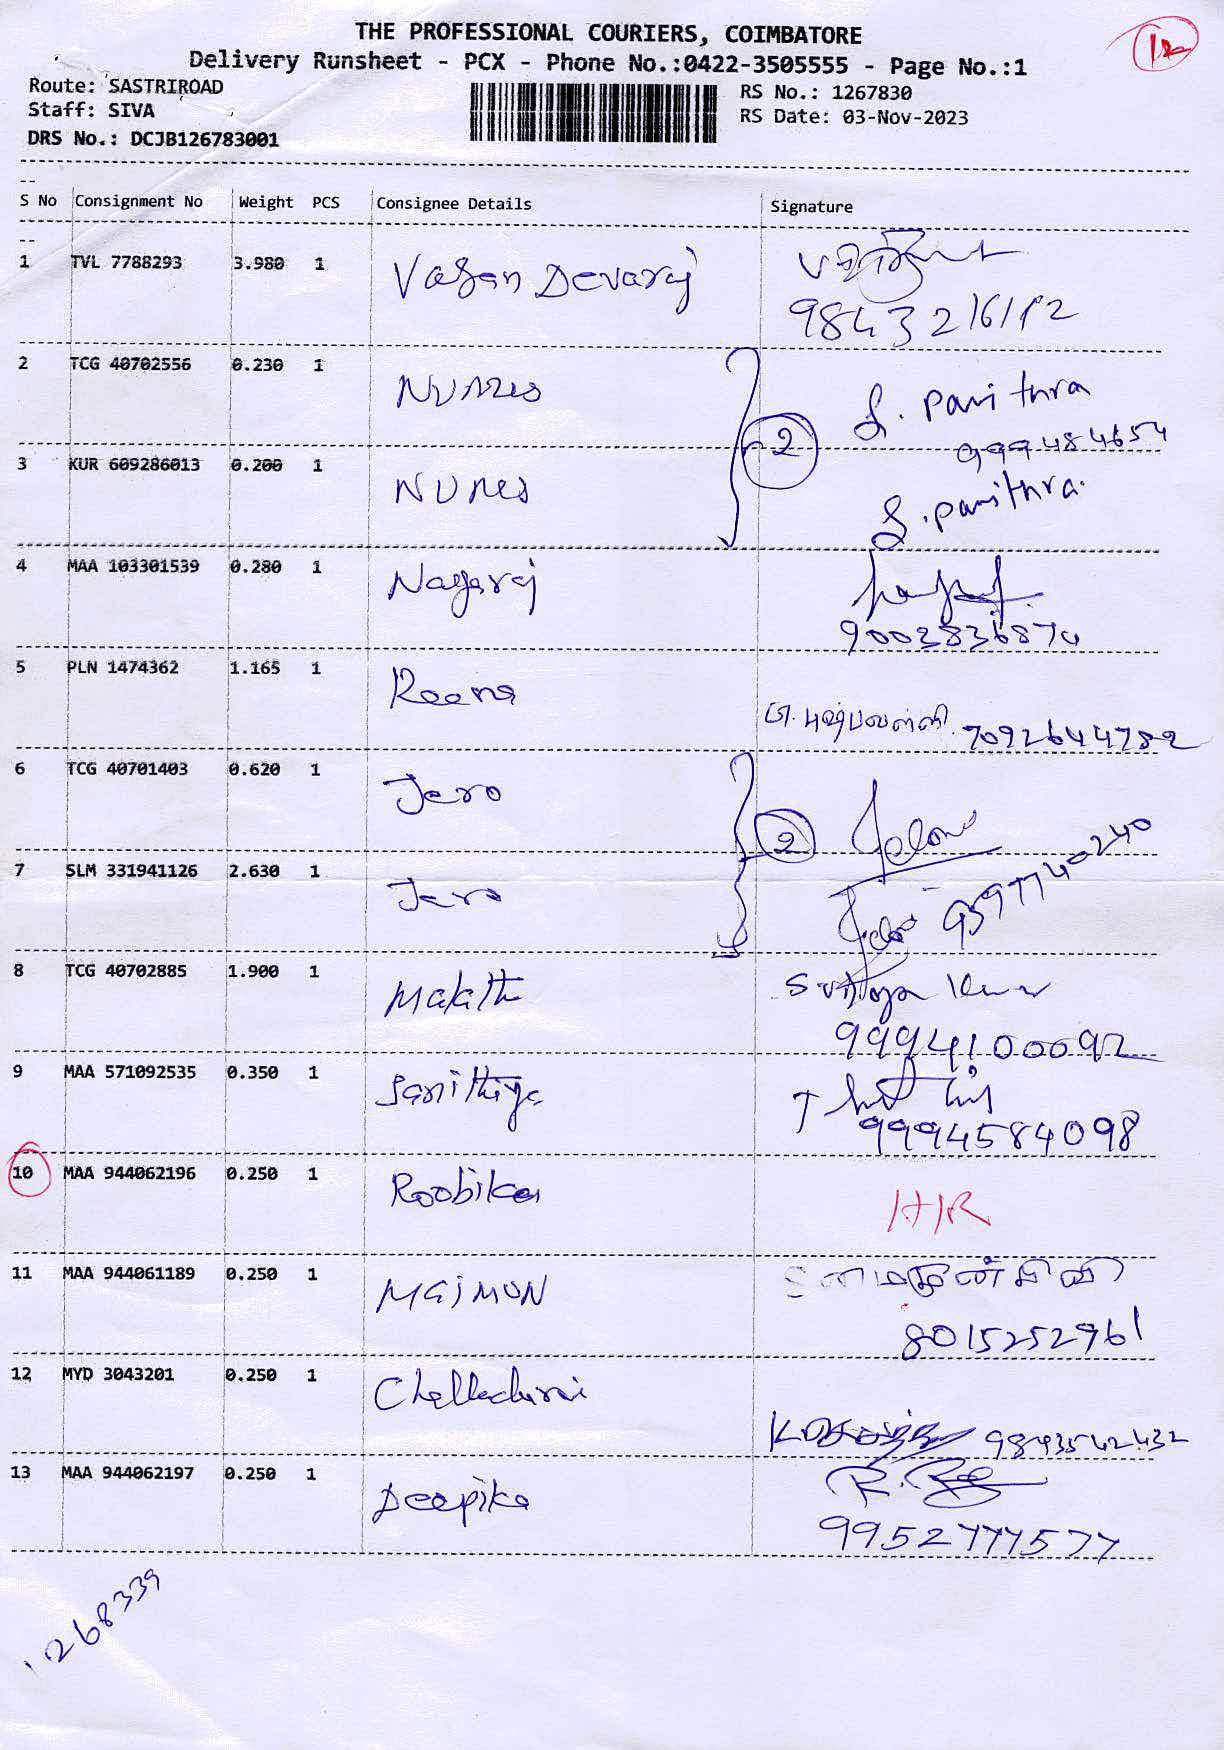 THE PROFESSIONAL COURIERS, COIMBATORE
12
Delivery Runsheet - PCX - Phone No.:0422-3505555 - Page No.:1
Route: SASTRIROAD
RS No.: 1267830
Staff: SIVA
RS Date: 03-Nov-2023
DRS No.: DCJB126783001
S No Consignment No Weight PCS Consignee Details Signature
1 TVL 7788293 3.980 1 Vasan Devaraj
9843216112
2 TCG 40702556 0.230 1 NUMes S. Pavithra
2 999484654
3 KUR 609286013 0.200 1 NUMes S. Pavithra.
4 MAA 103301539 0.280 1 Nagaraj
9002836870
5 PLN 1474362 1.165 1 Reena
7092644782
6 TCG 40701403 0.620 1 Jero
2
7 SLM 331941126 2.630 1 Jero 9597740240
8 TCG 40702885 1.900 1 Malathi
9994100092
9 MAA 571092535 0.350 1 Sanithiya
9994584098
10 MAA 944062196 0.250 1 Roobika HR
11 MAA 944061189 0.250 1 MaiMUN
8015252961
12 MYD 3043201 0.250 1 Chelladurai
9843542432
13 MAA 944062197 0.250 1 Deepika
9952777577
1268339